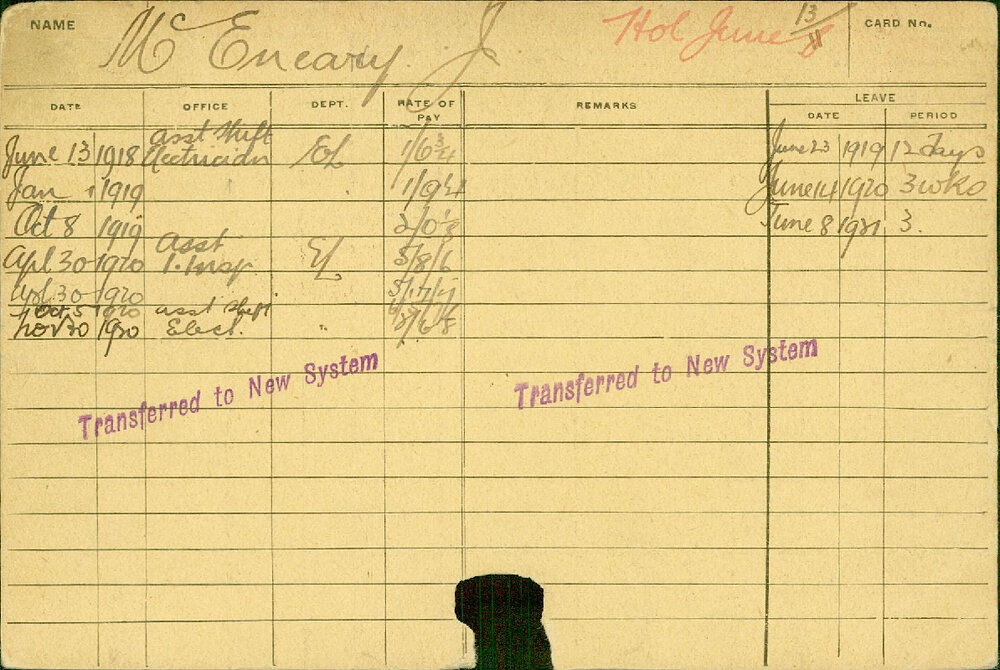 NAME McEneary. J Hol June 8 13/11 CARD No.
DATE OFFICE DEPT. RATE OF PAY REMARKS LEAVE
DATE PERIOD
June 13 1918 Asst Shift Electrician EL 1/6¾ June 23 1919 12 days
Jan 1 1919 1/9¼ June 14 1920 3 wks
Oct 8 1919 2/0 June 8 1921 3.
Apl 30 1920 Asst I. Insp. EL 5/8/6
Apl 30 1920
Oct 5 1920 Asst Shift
Nov 30 1920 Elect. "
Transferred to New System Transferred to New System